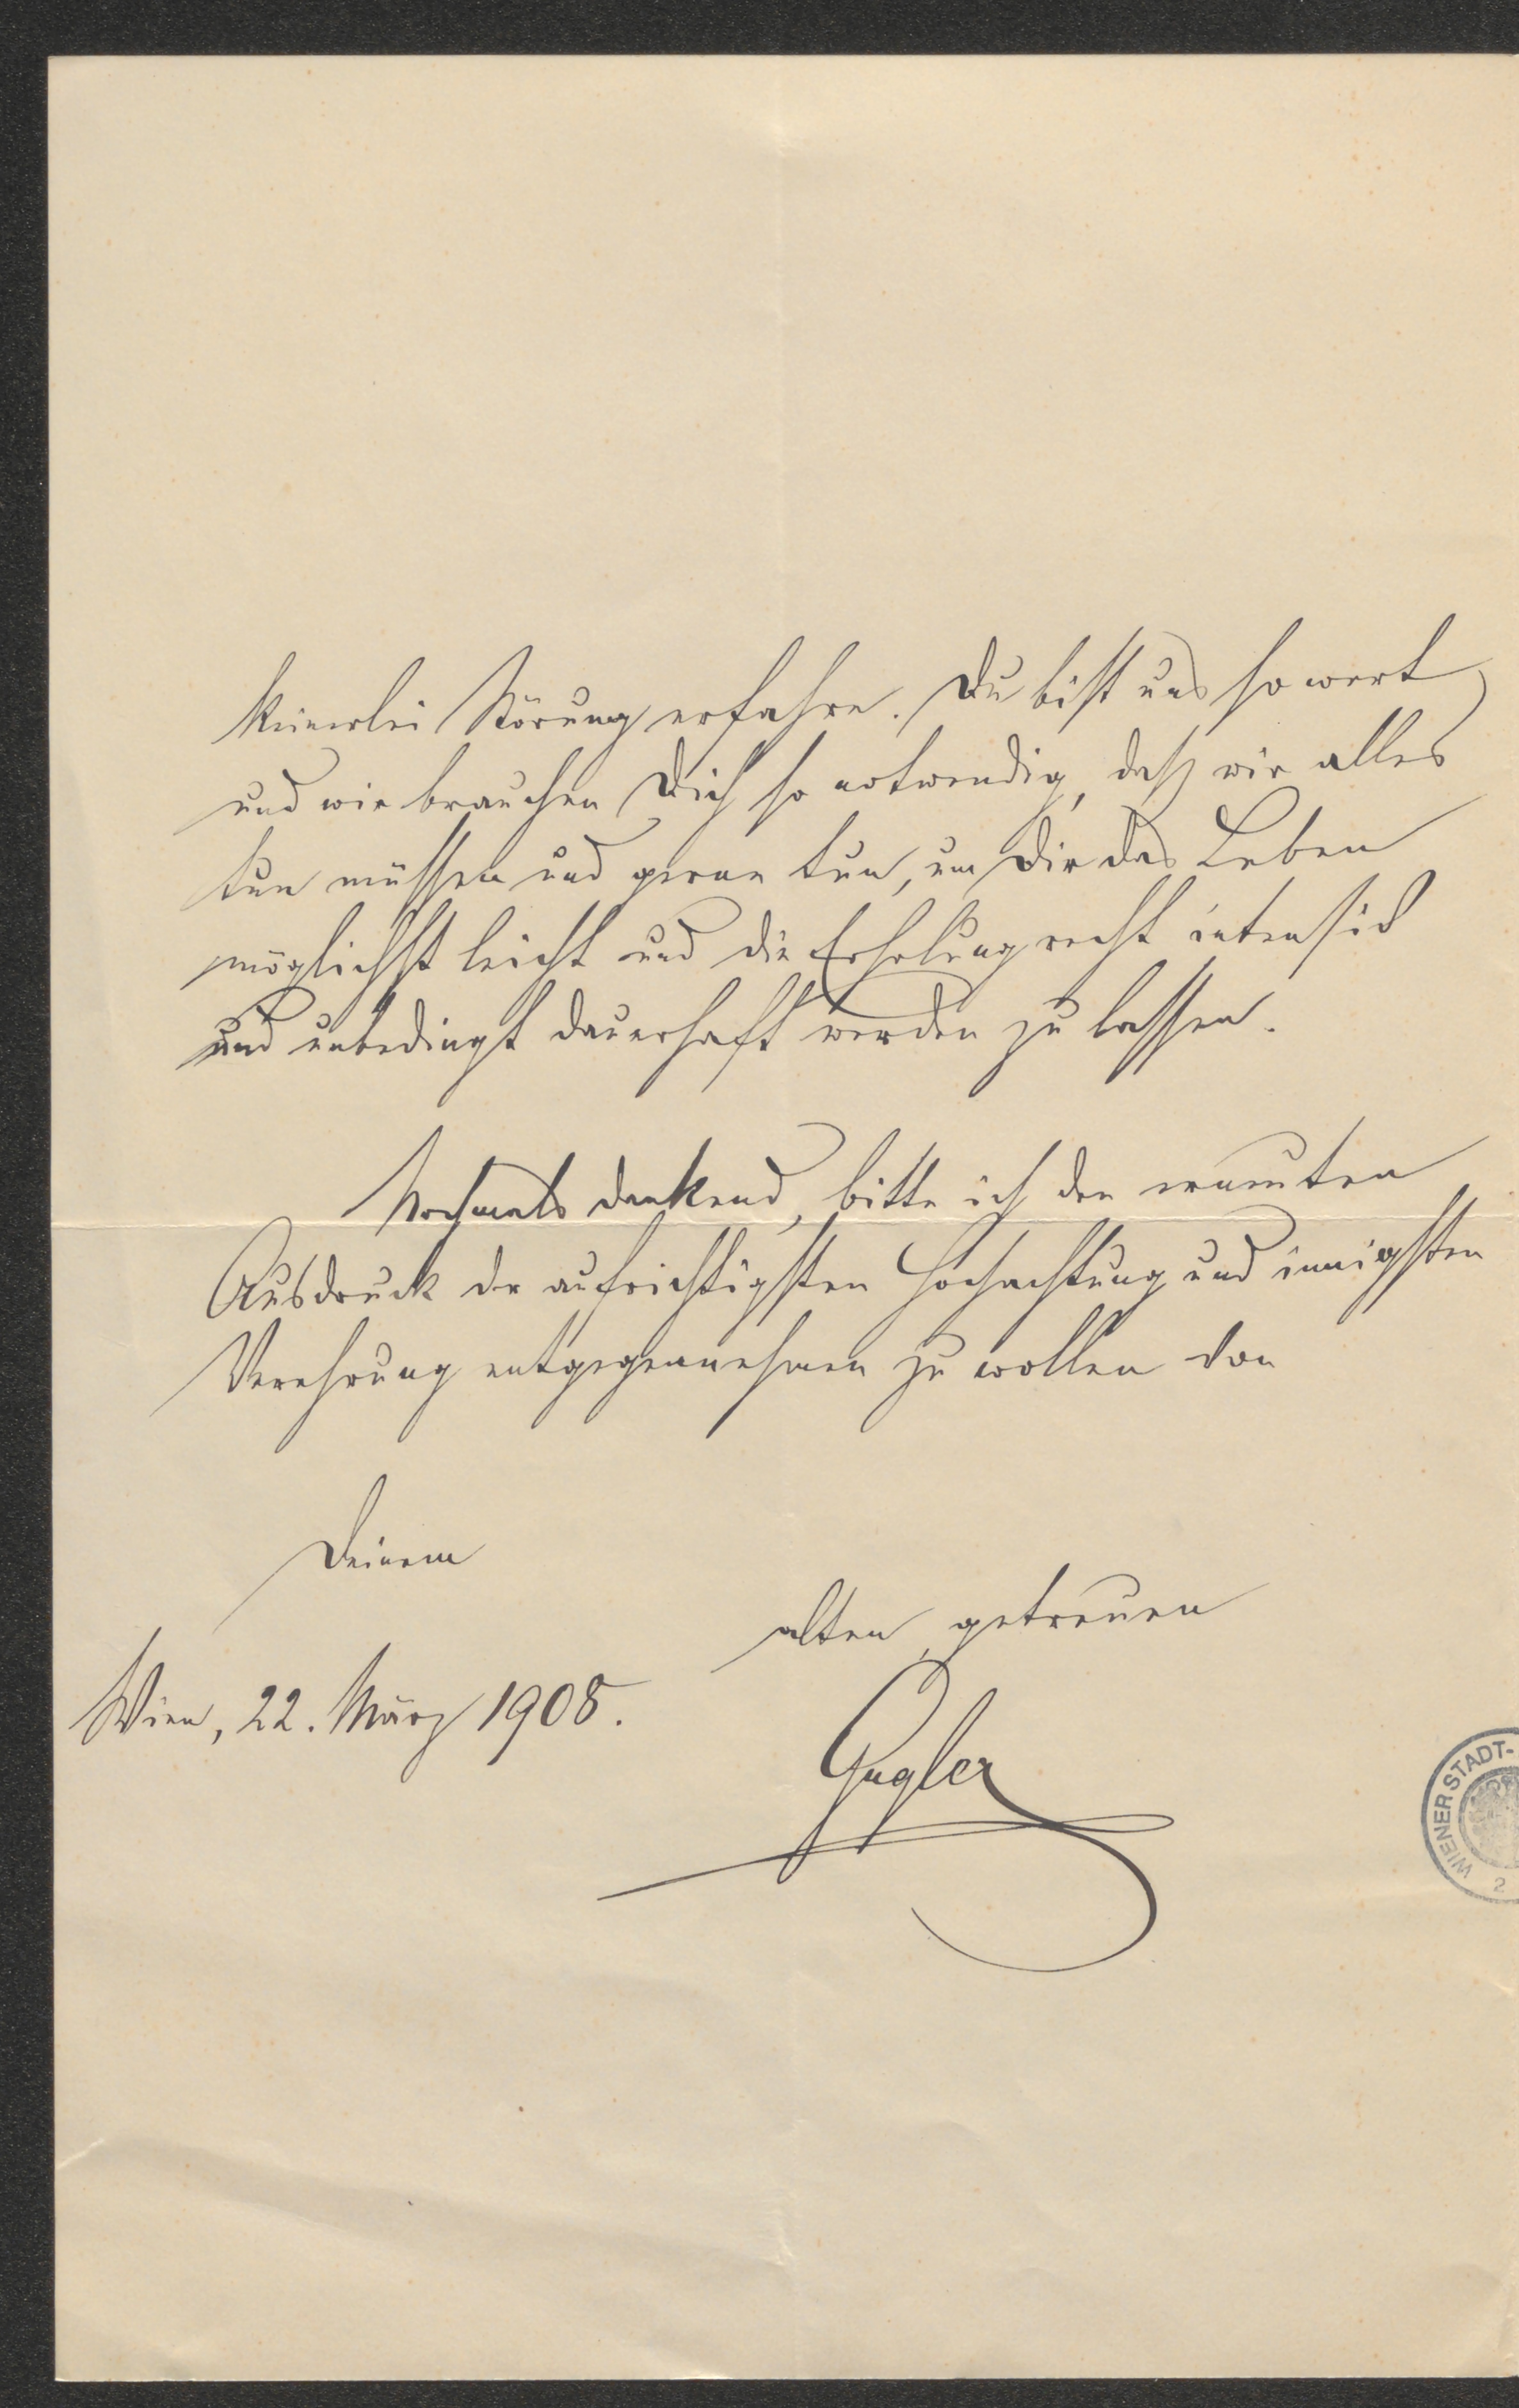 keinerlei Störung erfahre. Du bist uns so wert
und wir brauchen Dich so notwendig, daß wir alles
tun müssen und gerne tun, um Dir das Leben
möglichst leicht und die Erholung recht intensiv
und unbedingt dauerhaft werden zu lassen.
Nochmals dankend, bitte ich den erneuten
Ausdruck der aufrichtigsten Hochachtung und innigsten
Verehrung entgegennehmen zu wollen von
Deinem
alten, getreuen
Wien, 22. März 1908.
Gugler
WIENER STADT-
2